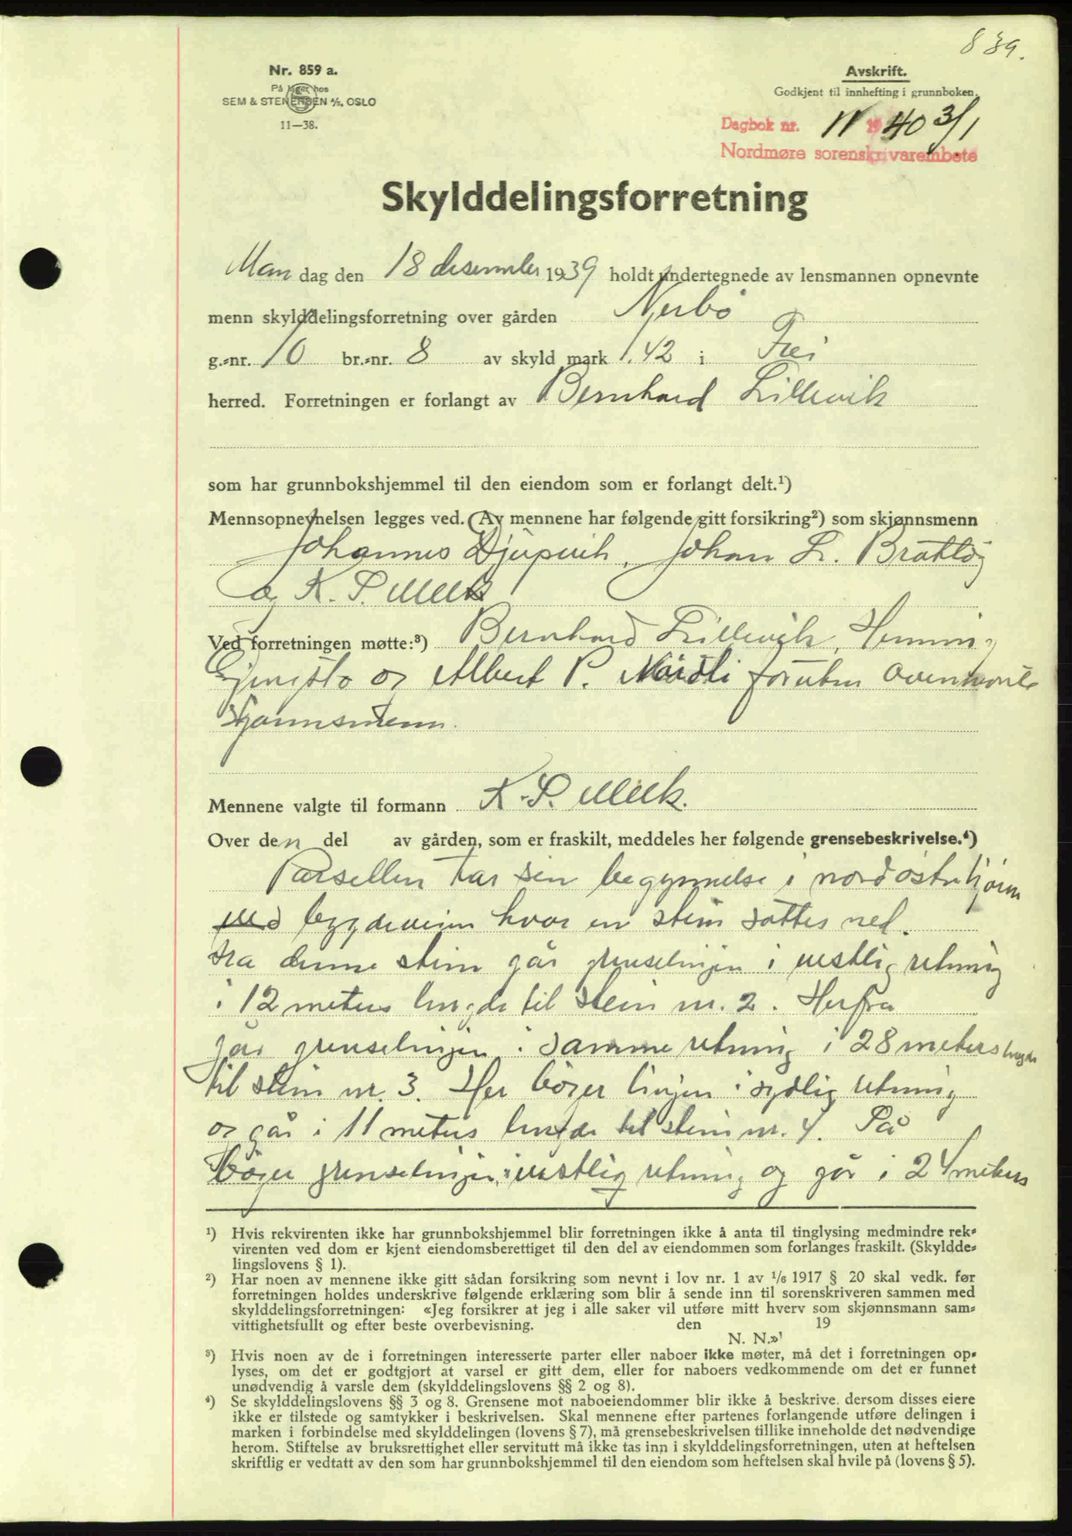 839.
Nr. 859 a.
På lager hos
SEM & STENERSEN A/S, OSLO
11—38.
Avskrift.
Godkjent til innhefting i grunnboken.
Dagbok nr. 11 1940 3/1
Nordmøre sorenskrivarembete
Skylddelingsforretning
Man dag den 18 desember 1939 holdt undertegnede av lensmannen opnevnte
menn skylddelingsforretning over gården Nerbö
g.-nr. 10 br.-nr. 8 av skyld mark 1.42 i Frei
herred. Forretningen er forlangt av Bernhard Lillevik
som har grunnbokshjemmel til den eiendom som er forlangt delt.¹)
Mennsopnevnelsen legges ved. (Av mennene har følgende gitt forsikring²) som skjønnsmenn
Johannes Djupvik, Johan L. Brattöy
og K. P. Meek
Ved forretningen møtte:³) Bernhard Lillevik, Henning
og Albert P. Nordli foruten ovennevnte
skjønnsmenn.
Mennene valgte til formann K. P. Meek.
Over den del av gården, som er fraskilt, meddeles her følgende grensebeskrivelse.⁴)
Parsellen tar sin begynnelse i nordöstre hjörne
ved bygdeveien hvor en stein sattes ned.
Fra denne stein går grenselinjen i vestlig retning
i 12 meters lengde til stein nr. 2. Herfra
går grenselinjen i samme retning i 28 meters lengde
til stein nr. 3. Her böyer linjen i sydlig retning
og går i 11 meters lengde til stein nr. 4. Så
böyer grenselinjen i vestlig retning og går i 24 meters
¹) Hvis rekvirenten ikke har grunnbokshjemmel blir forretningen ikke å anta til tinglysing medmindre rek-
virenten ved dom er kjent eiendomsberettiget til den del av eiendommen som forlanges fraskilt. (Skyldde-
lingslovens § 1).
²) Har noen av mennene ikke gitt sådan forsikring som nevnt i lov nr. 1 av 1/6 1917 § 20 skal vedk. før
forretningen holdes underskrive følgende erklæring som blir å sende inn til sorenskriveren sammen med
skylddelingsforretningen: «Jeg forsikrer at jeg i alle saker vil utføre mitt hverv som skjønnsmann sam-
vittighetsfullt og efter beste overbevisning. den 19
N. N.»
³) Hvis noen av de i forretningen interesserte parter eller naboer ikke møter, må det i forretningen op-
lyses, om det er godtgjort at varsel er gitt dem, eller for naboers vedkommende om det er funnet
unødvendig å varsle dem (skylddelingslovens §§ 2 og 8).
⁴) Se skylddelingslovens §§ 3 og 8. Grensene mot naboeiendommer blir ikke å beskrive, dersom disses eiere
ikke er tilstede og samtykker i beskrivelsen. Skal mennene efter partenes forlangende utføre delingen i
marken i forbindelse med skylddelingen (lovens § 7), må grensebeskrivelsen tillike inneholde det nødvendige
herom. Stiftelse av bruksrettighet eller servitutt må ikke tas inn i skylddelingsforretningen, uten at heftelsen
skriftlig er vedtatt av den som har grunnbokshjemmel til den eiendom som heftelsen skal hvile på (lovens § 5).